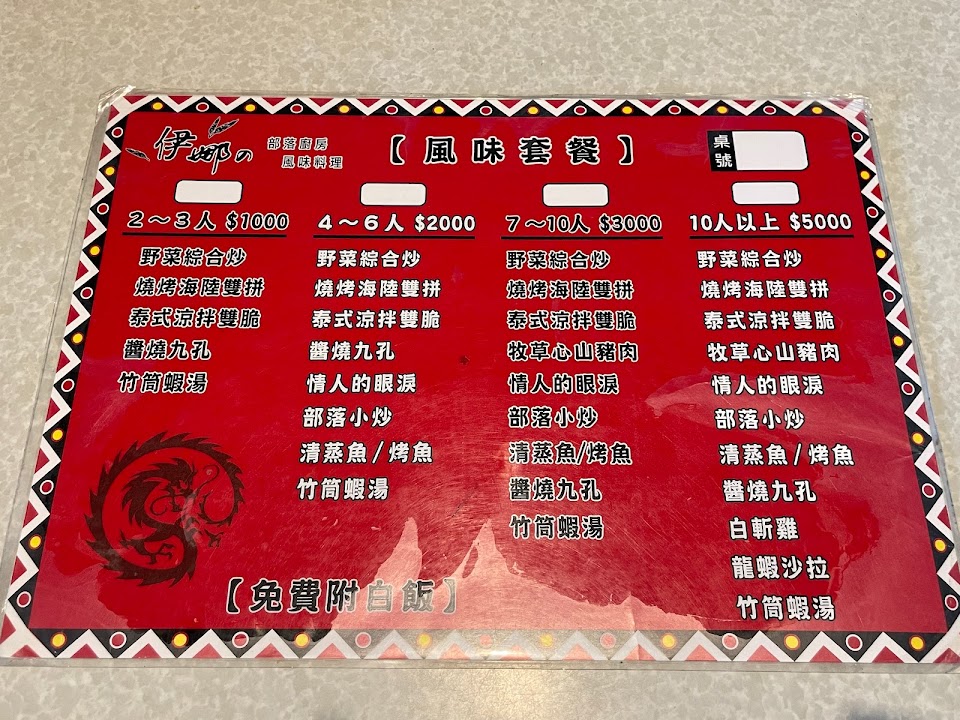 伊娜の
部落廚房
風味料理
【風味套餐】
桌號
2～3人 $1000
野菜綜合炒
燒烤海陸雙拼
泰式涼拌雙脆
醬燒九孔
竹筒蝦湯
4～6人 $2000
野菜綜合炒
燒烤海陸雙拼
泰式涼拌雙脆
醬燒九孔
情人的眼淚
部落小炒
清蒸魚/烤魚
竹筒蝦湯
7～10人 $3000
野菜綜合炒
燒烤海陸雙拼
泰式涼拌雙脆
牧草心山豬肉
情人的眼淚
部落小炒
清蒸魚/烤魚
醬燒九孔
竹筒蝦湯
10人以上 $5000
野菜綜合炒
燒烤海陸雙拼
泰式涼拌雙脆
牧草心山豬肉
情人的眼淚
部落小炒
清蒸魚/烤魚
醬燒九孔
白斬雞
龍蝦沙拉
竹筒蝦湯
【免費附白飯】